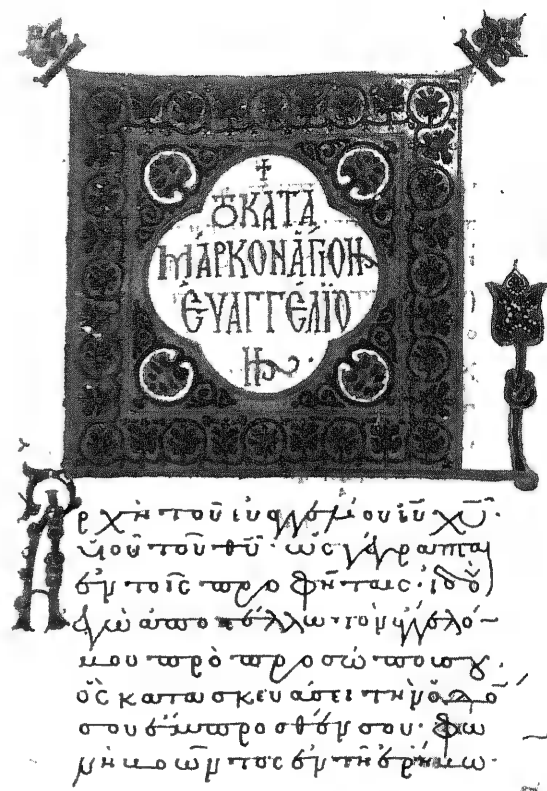 +
ΤΟ ΚΑΤΑ
ΜΑΡΚΟΝ ΑΓΙΟΝ
ΕΥΑΓΓΕΛΙΟ
Ν
Ἀρχὴ τοῦ εὐαγγελίου ἰῡ χῡ·
υἱοῦ τοῦ θῡ· ὡς γέγραπται
ἐν τοῖς προφήταις· ἰδοὺ
ἐγὼ ἀποστέλλω τὸν ἄγγελό-
μου πρὸ προσώπου σου·
ὃς κατασκευάσει τὴν ὁδό
σου ἔμπροσθέν σου· φω
νὴ βοῶντος ἐν τῆ ἐρήμω·